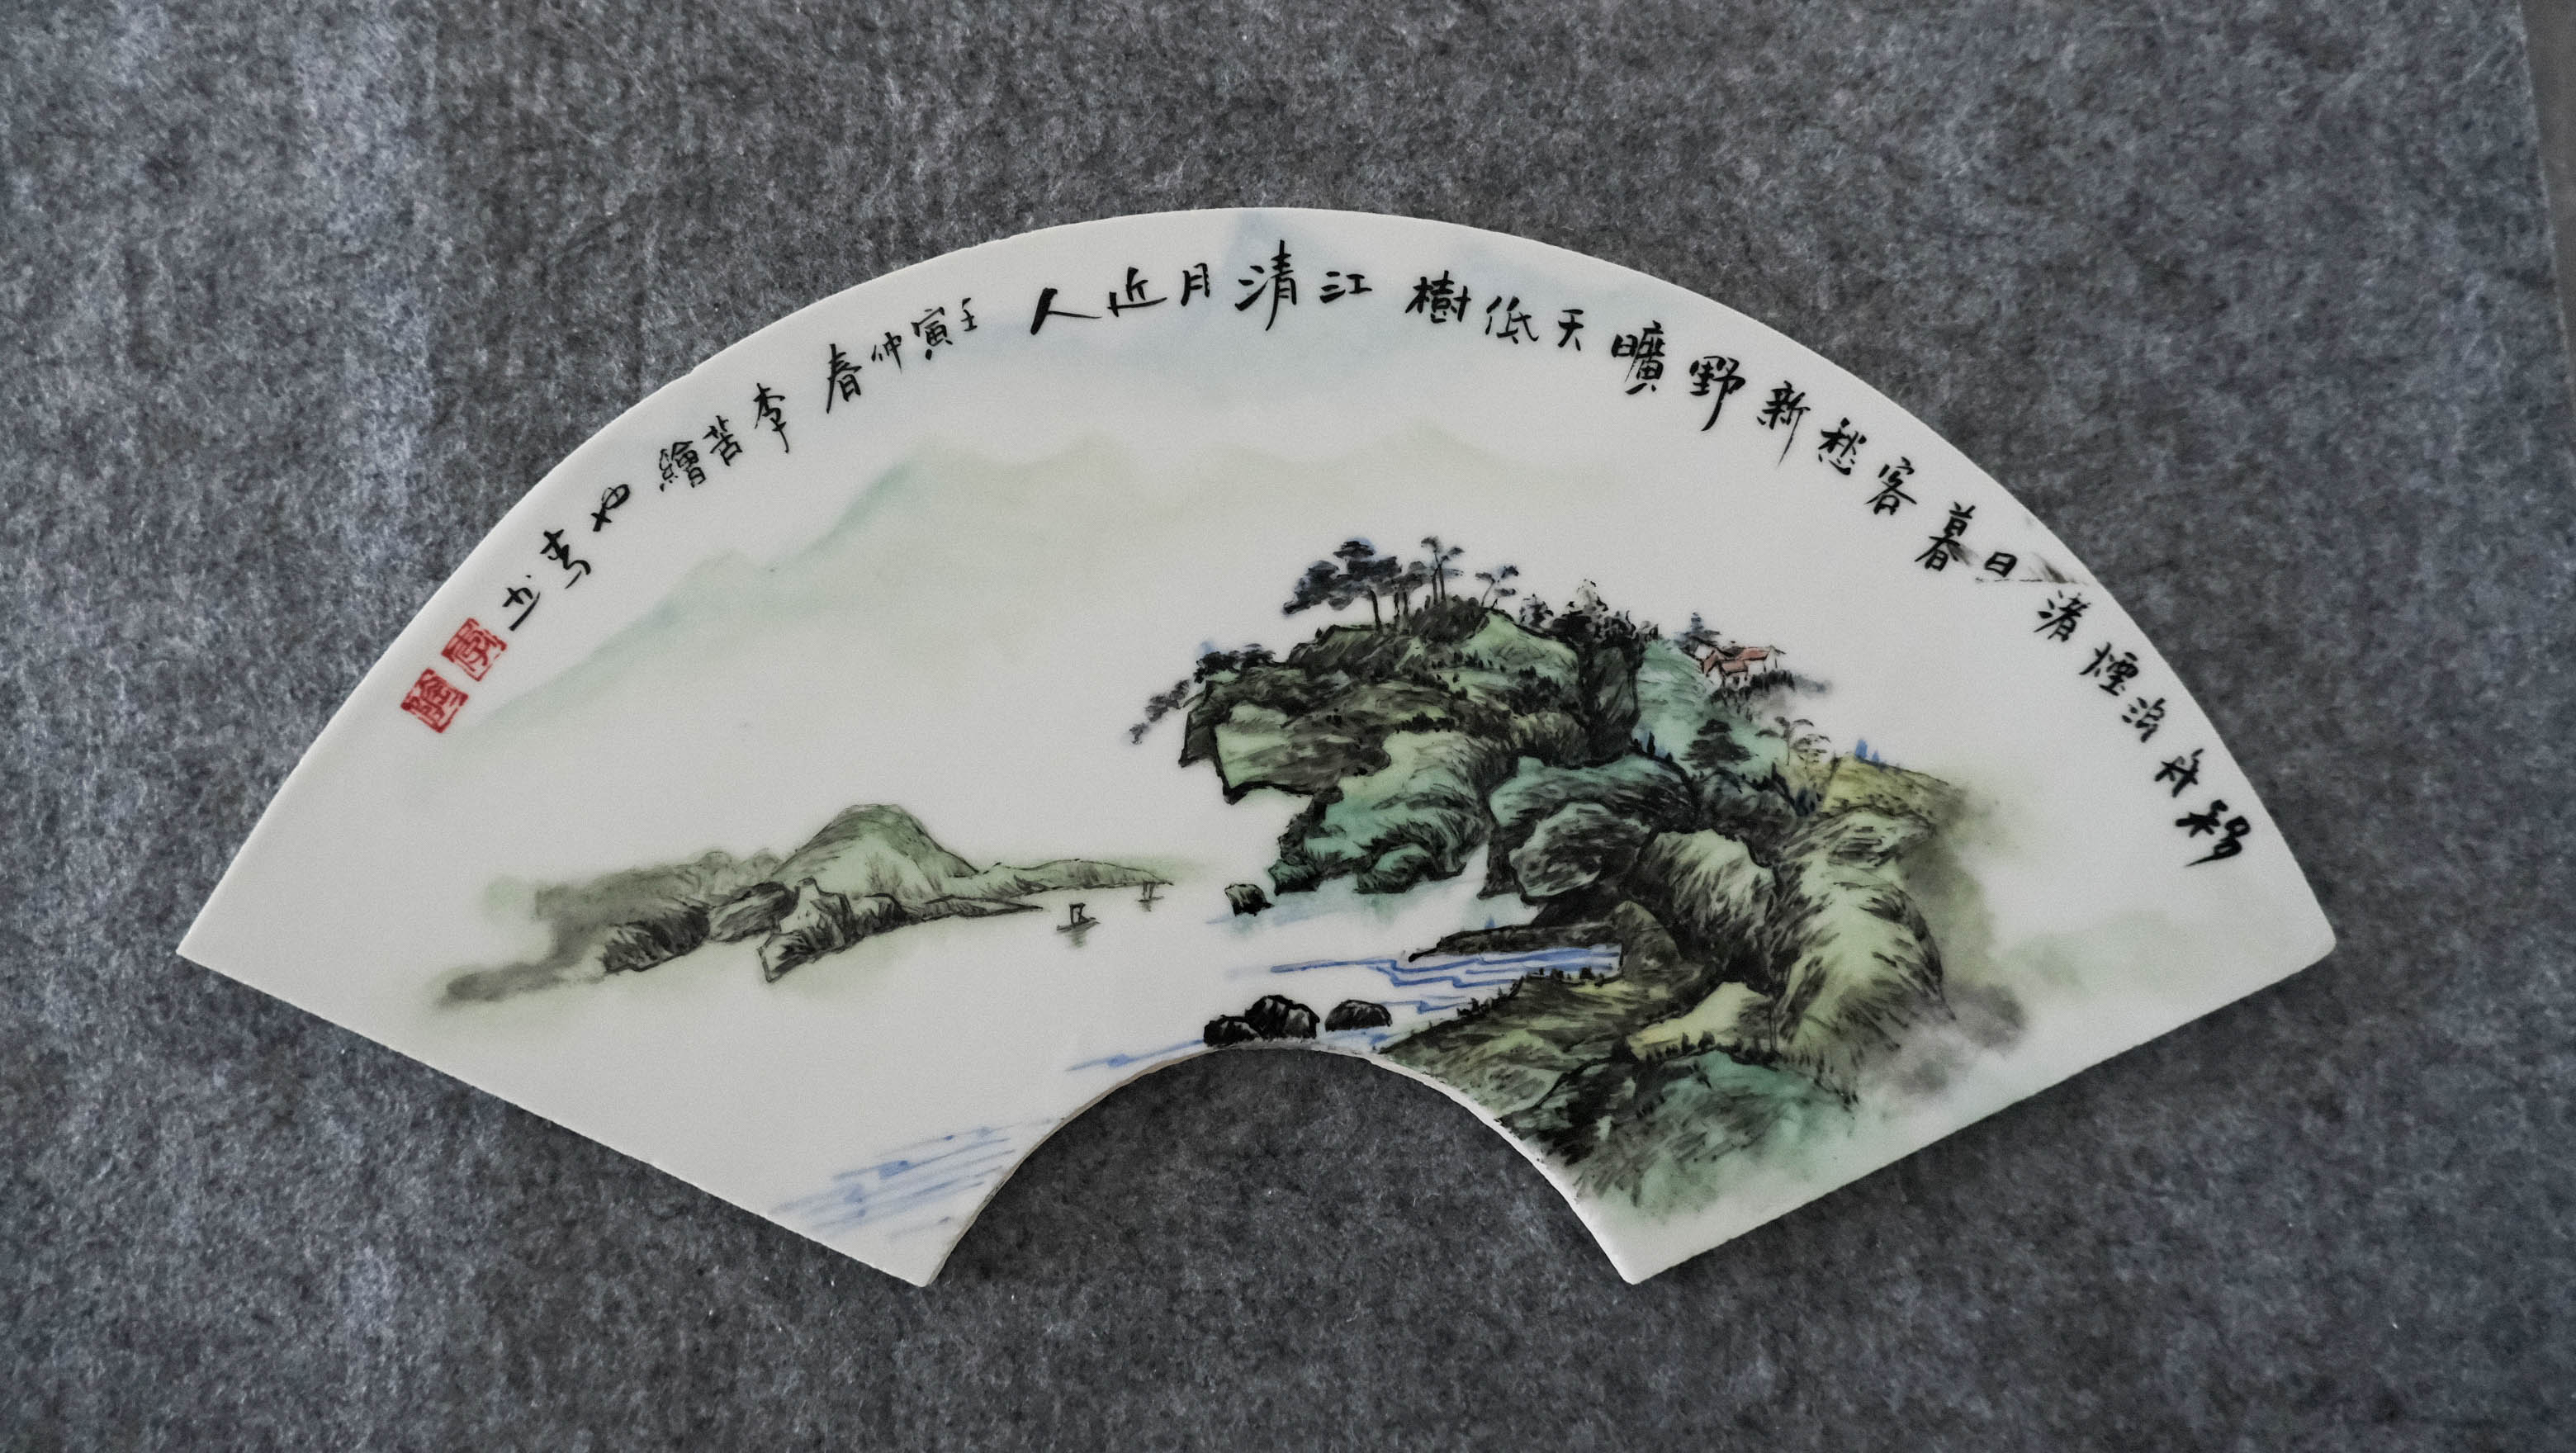 移舟泊煙渚日暮客愁新野曠天低樹江清月近人壬寅仲春李苦繪